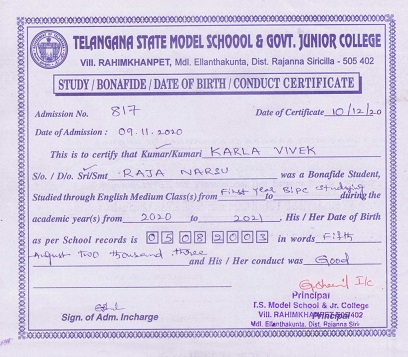 TELANGANA STATE MODEL SCHOOOL & GOVT. JUNIOR COLLEGE
Vill. RAHIMKHANPET, Mdl. Ellanthakunta, Dist. Rajanna Siricilla - 505 402
STUDY / BONAFIDE / DATE OF BIRTH / CONDUCT CERTIFICATE
Admission No. 817 Date of Certificate 10/12/20
Date of Admission : 09.11.2020
This is to certify that Kumar/Kumari KARLA VIVEK
S/o. / D/o. Sri/Smt RAJA NARSU was a Bonafide Student,
Studied through English Medium Class(s) from First year BiPC studying to during the
academic year(s) from 2020 to 2021, His / Her Date of Birth
as per School records is 05082003 in words Fifth
August Two thousand three and His / Her conduct was Good
I/c
Principal
Sign. of Adm. Incharge
T.S. Model School & Jr. College
Vill. RAHIMKHANPET-505402
Principal
Mdl. Ellanthakunta, Dist. Rajanna Siri